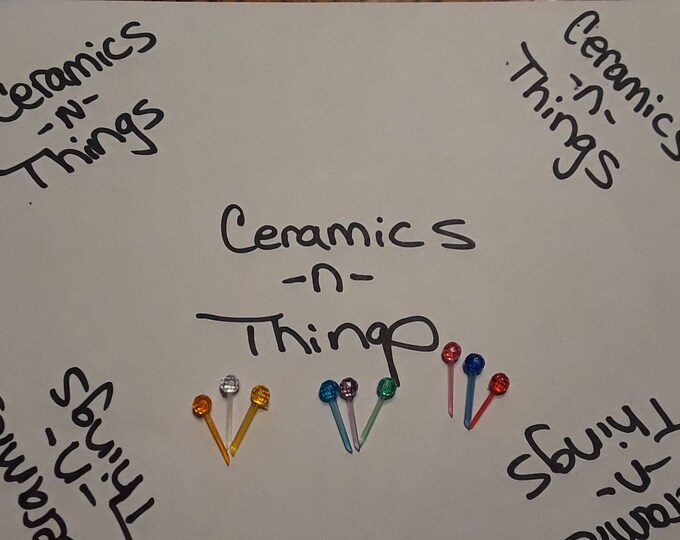 Ceramics
-N-
Things
Ceramics
-n-
Things
Ceramics
-n-
Things
-n-
Things
-n-
Things